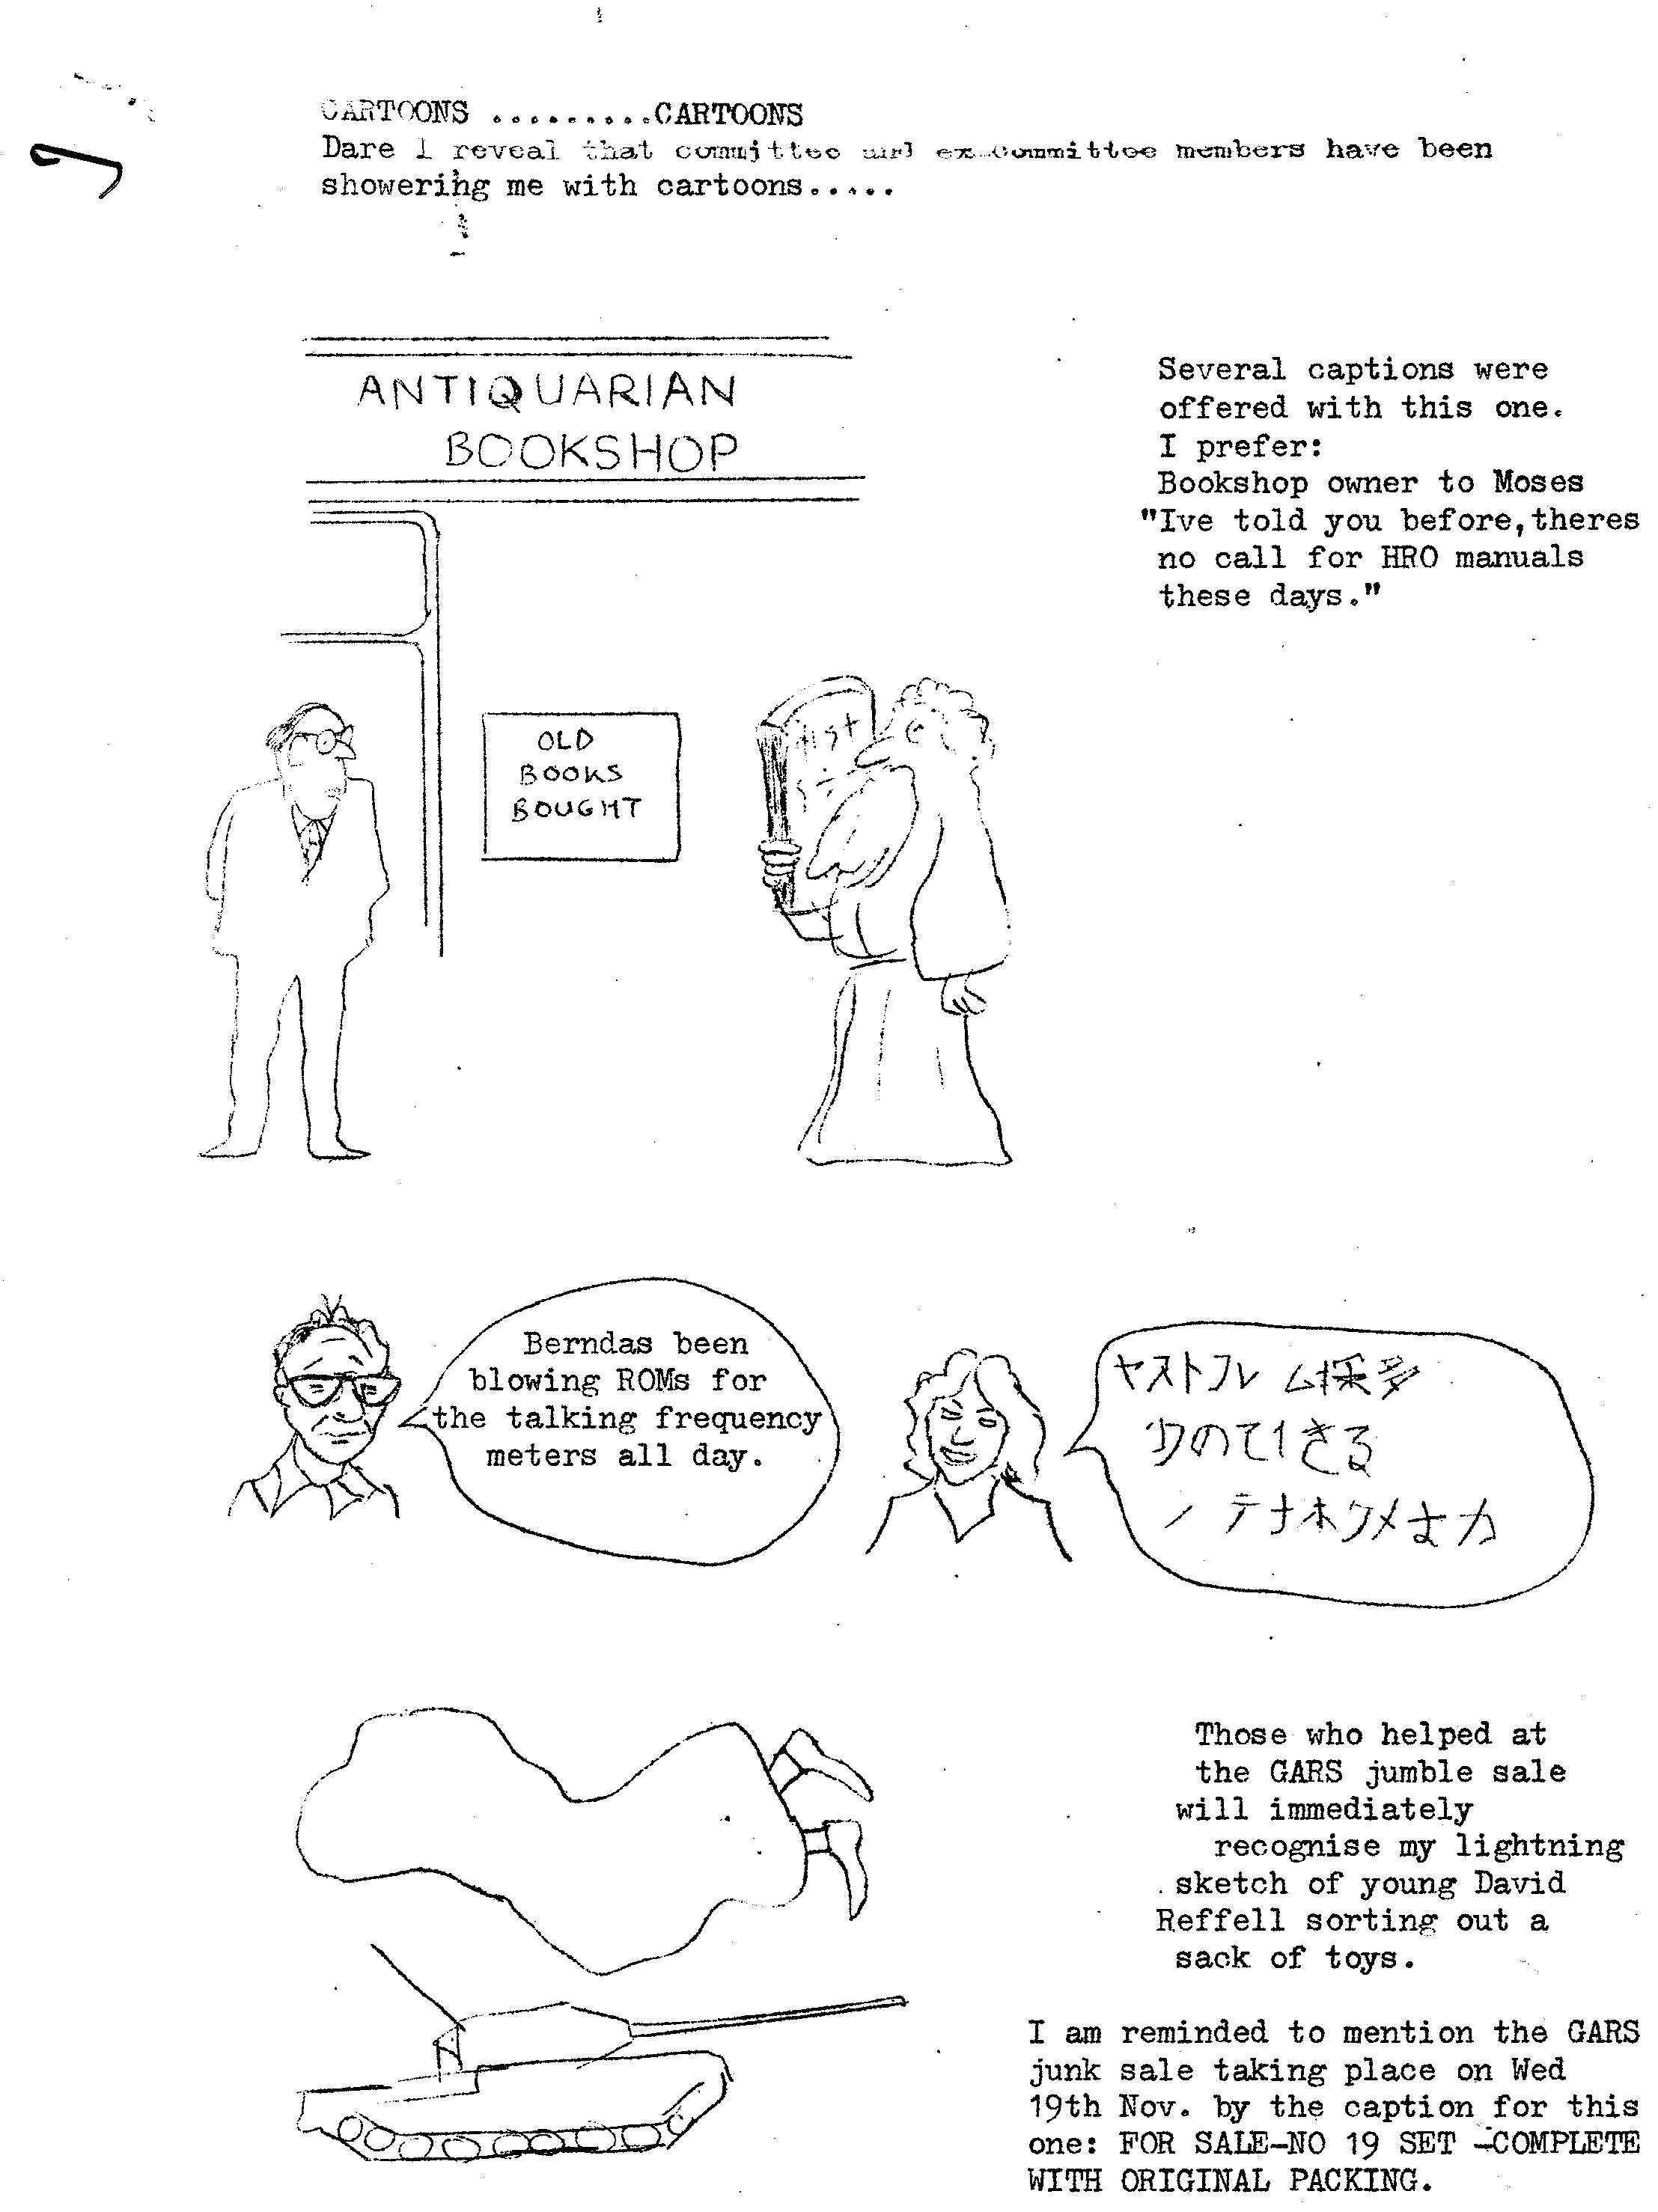 CARTOONS .........CARTOONS
Dare I reveal that committee and ex-committee members have been
showering me with cartoons.....
ANTIQUARIAN
BOOKSHOP
Several captions were
offered with this one.
I prefer:
Bookshop owner to Moses
"Ive told you before,theres
no call for HRO manuals
these days."
OLD
BOOKS
BOUGHT
Berndas been
blowing ROMs for
the talking frequency
meters all day.
ヤストフレ ム採多
のて1きる
ノ テナホクメ 力
Those who helped at
the GARS jumble sale
will immediately
recognise my lightning
sketch of young David
Reffell sorting out a
sack of toys.
I am reminded to mention the GARS
junk sale taking place on Wed
19th Nov. by the caption for this
one: FOR SALE-NO 19 SET -COMPLETE
WITH ORIGINAL PACKING.